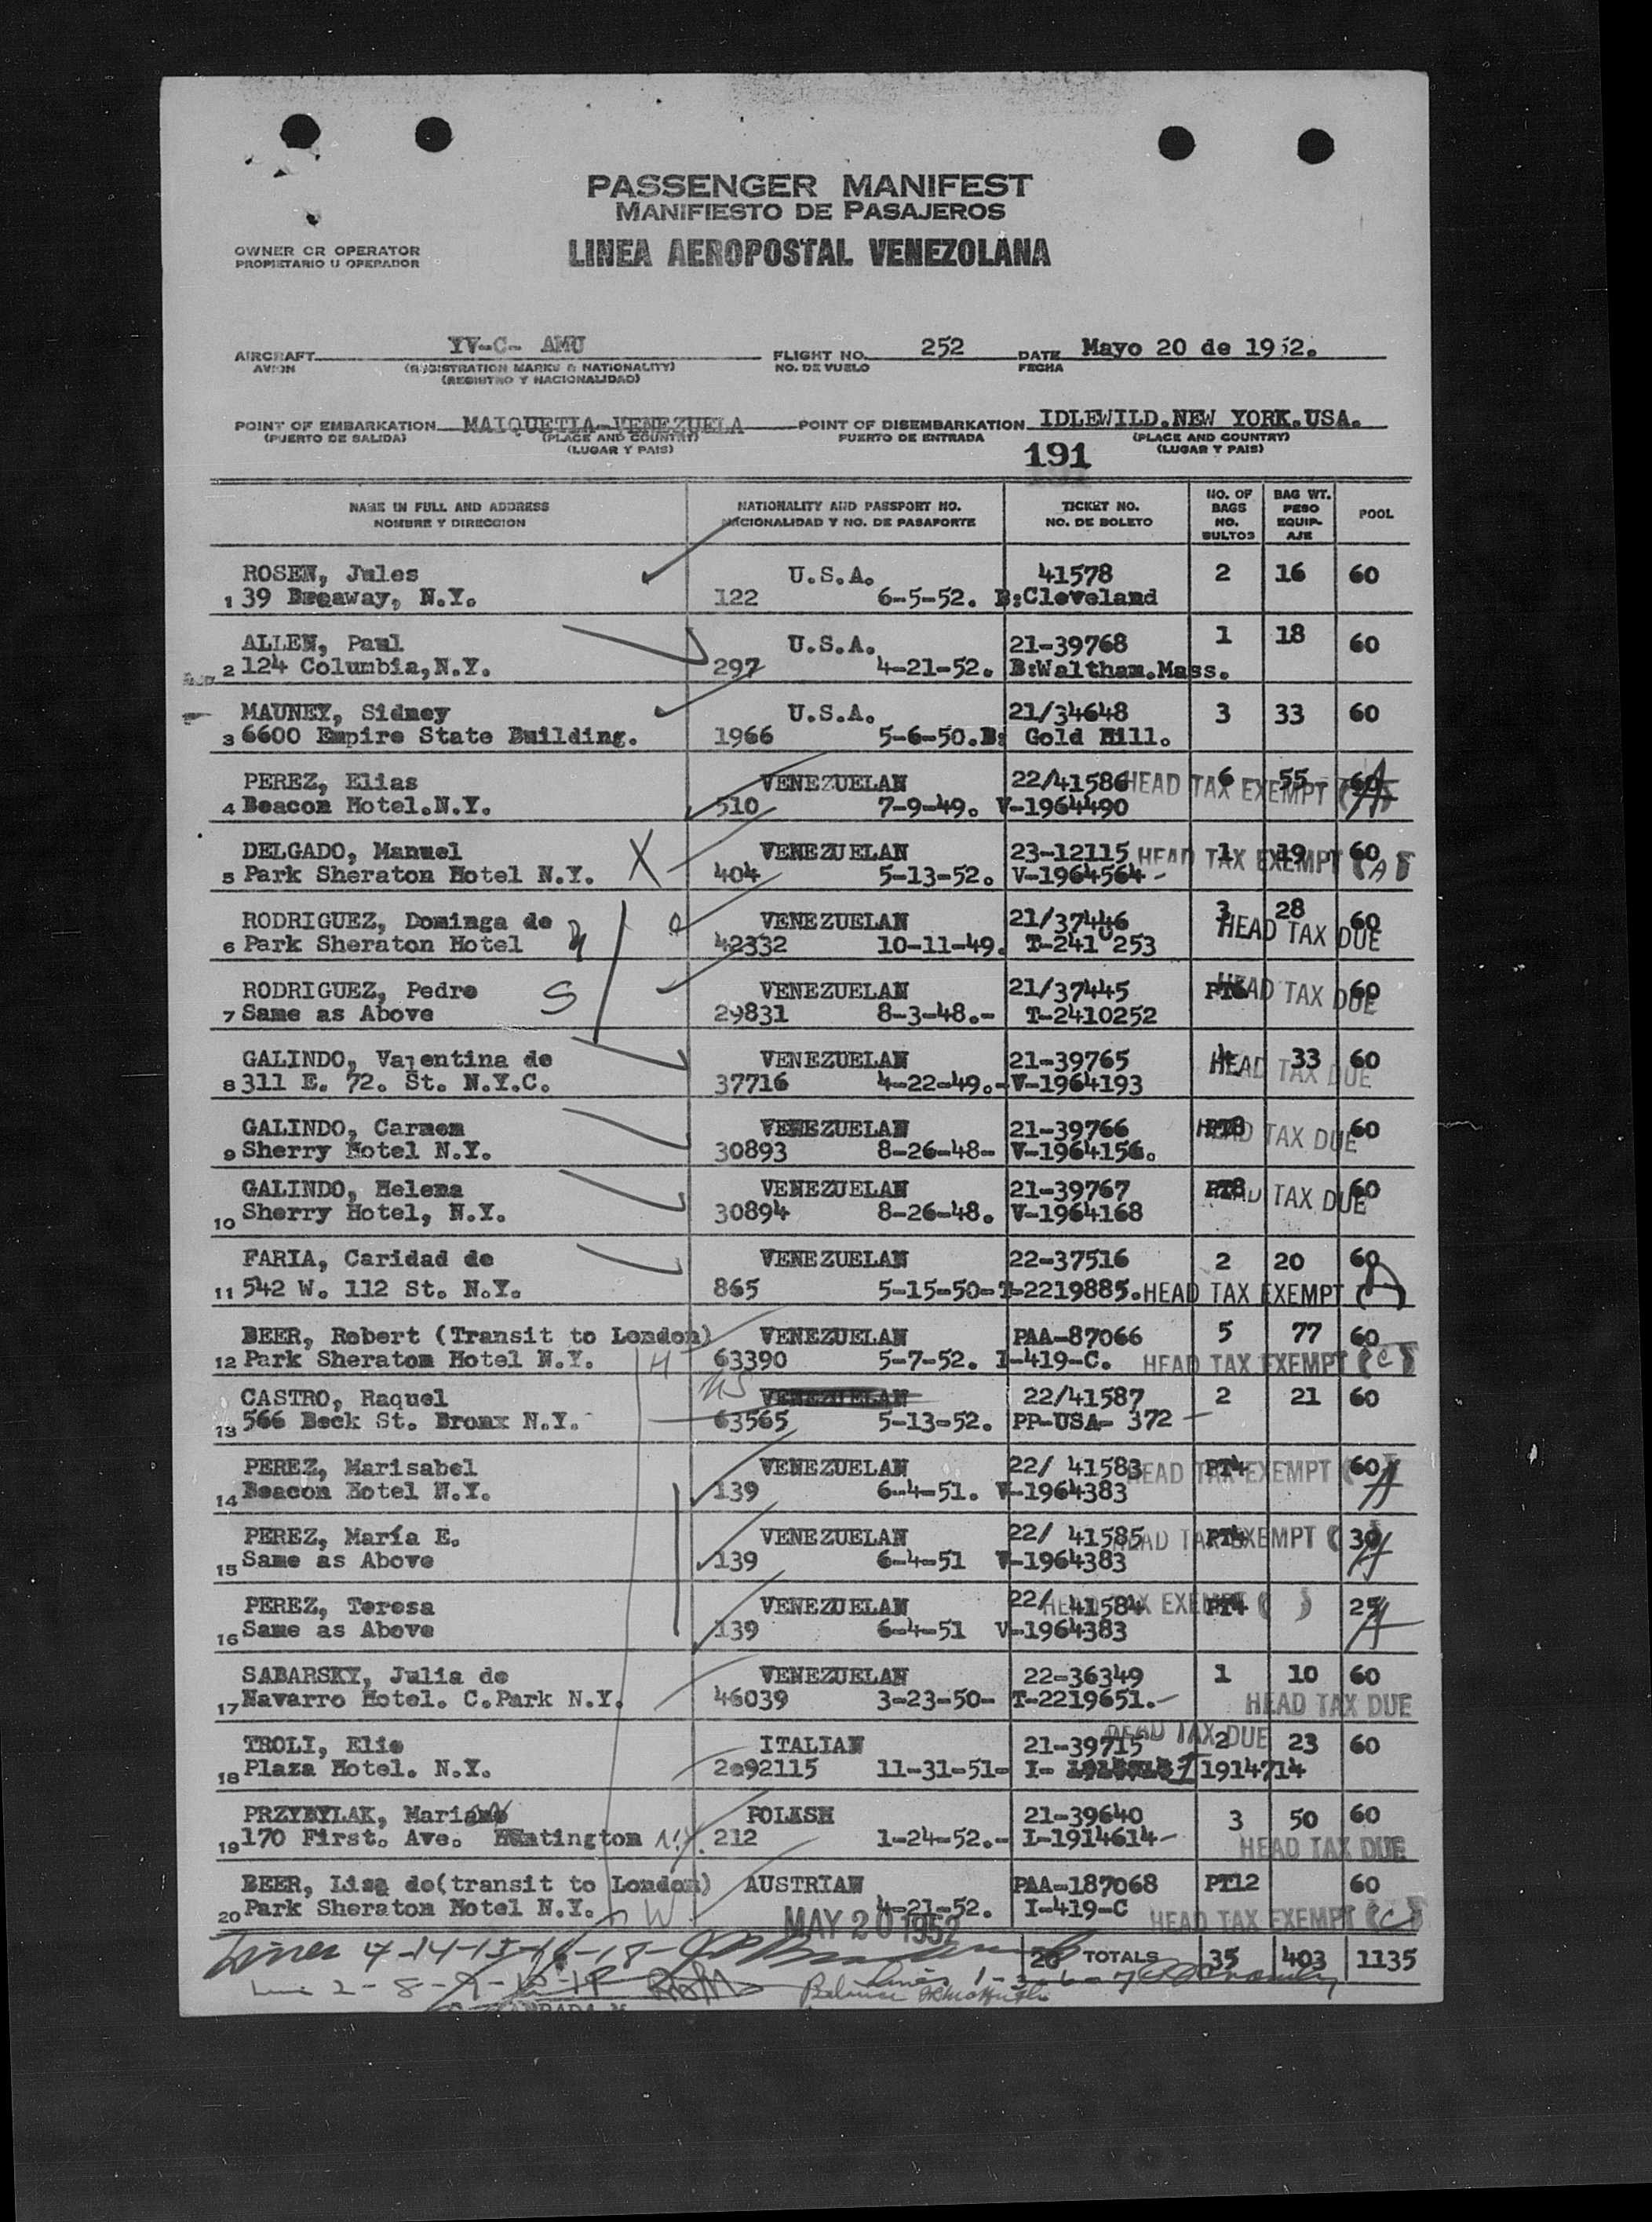 PASSENGER MANIFEST
MANIFIESTO DE PASAJEROS
OWNER OR OPERATOR
PROPIETARIO U OPERADOR
LINEA AEROPOSTAL VENEZOLANA
AIRCRAFT YV-C- AMU FLIGHT NO. 252 DATE Mayo 20 de 1952.
AVION (REGISTRATION MARKS & NATIONALITY) NO. DE VUELO FECHA
(REGISTRO Y NACIONALIDAD)
POINT OF EMBARKATION MAIQUETIA-VENEZUELA POINT OF DISEMBARKATION IDLEWILD.NEW YORK.USA.
(PUERTO DE SALIDA) (PLACE AND COUNTRY) PUERTO DE ENTRADA (PLACE AND COUNTRY)
(LUGAR Y PAIS) 191 (LUGAR Y PAIS)
NAME IN FULL AND ADDRESS NATIONALITY AND PASSPORT NO. TICKET NO. NO. OF BAGS BAG WT. POOL
NOMBRE Y DIRECCION NACIONALIDAD Y NO. DE PASAPORTE NO. DE BOLETO NO. BULTOS PESO EQUIP-AJE
ROSEN, Jules U.S.A. 41578 2 16 60
1 39 Broaway, N.Y. 122 6-5-52. B:Cleveland
ALLEN, Paul U.S.A. 21-39768 1 18 60
2 124 Columbia,N.Y. 297 4-21-52. B:Waltham.Mass.
MAUNEY, Sidney U.S.A. 21/34648 3 33 60
3 6600 Empire State Building. 1966 5-6-50.B: Gold Hill.
PEREZ, Elias VENEZUELAN 22/41586 6 55 60 HEAD TAX EXEMPT (A)
4 Beacon Hotel.N.Y. 510 7-9-49. V-1964490
DELGADO, Manuel X VENEZUELAN 23-12115 1 19 60 HEAD TAX EXEMPT (A)
5 Park Sheraton Hotel N.Y. 404 5-13-52. V-1964564-
RODRIGUEZ, Dominga de VENEZUELAN 21/37446 3 28 60 HEAD TAX DUE
6 Park Sheraton Hotel 42332 10-11-49. T-2410253
RODRIGUEZ, Pedro S VENEZUELAN 21/37445 PT6 60 HEAD TAX DUE
7 Same as Above 29831 8-3-48.- T-2410252
GALINDO, Valentina de VENEZUELAN 21-39765 4 33 60 HEAD TAX DUE
8 311 E. 72. St. N.Y.C. 37716 4-22-49.-V-1964193
GALINDO, Carmen VENEZUELAN 21-39766 PT8 60 HEAD TAX DUE
9 Sherry Hotel N.Y. 30893 8-26-48- V-1964156.
GALINDO, Helena VENEZUELAN 21-39767 PT8 60 HEAD TAX DUE
10 Sherry Hotel, N.Y. 30894 8-26-48. V-1964168
FARIA, Caridad de VENEZUELAN 22-37516 2 20 60
11 542 W. 112 St. N.Y. 865 5-15-50-T-2219885. HEAD TAX EXEMPT (A)
BEER, Robert (Transit to London) VENEZUELAN PAA-87066 5 77 60
12 Park Sheraton Hotel N.Y. H 63390 5-7-52. I-419-C. HEAD TAX EXEMPT (C)
CASTRO, Raquel US VENEZUELAN 22/41587 2 21 60
13 566 Beck St. Bronx N.Y. 63565 5-13-52. PP-USA- 372 -
PEREZ, Marisabel VENEZUELAN 22/ 41583 PT4 60 HEAD TAX EXEMPT (A)
14 Beacon Hotel N.Y. 139 6-4-51. V-1964383
PEREZ, María E. VENEZUELAN 22/ 41585 PT4 30 HEAD TAX EXEMPT (A)
15 Same as Above 139 6-4-51 V-1964383
PEREZ, Teresa VENEZUELAN 22/ 41584 PT4 25 HEAD TAX EXEMPT ( ) A
16 Same as Above 139 6-4-51 V-1964383
SABARSKY, Julia de VENEZUELAN 22-36349 1 10 60
17 Navarro Hotel. C.Park N.Y. 46039 3-23-50- T-2219651.- HEAD TAX DUE
TROLI, Elio ITALIAN 21-39715 2 23 60 HEAD TAX DUE
18 Plaza Hotel. N.Y. 2092115 11-31-51- I- 1914714
PRZYBYLAK, Mariano POLISH 21-39640 3 50 60
19 170 First. Ave. Huntington N.Y. 212 1-24-52.- I-1914614- HEAD TAX DUE
BEER, Lisa de(transit to London) AUSTRIAN PAA-187068 PT12 60
20 Park Sheraton Hotel N.Y. W 4-21-52. I-419-C HEAD TAX EXEMPT (C)
MAY 20 1952
Lines 4-14-15-16-18-
20 TOTALS 35 403 1135
Line 2-8-9-10-
Lines 1-3-6-7
Balance